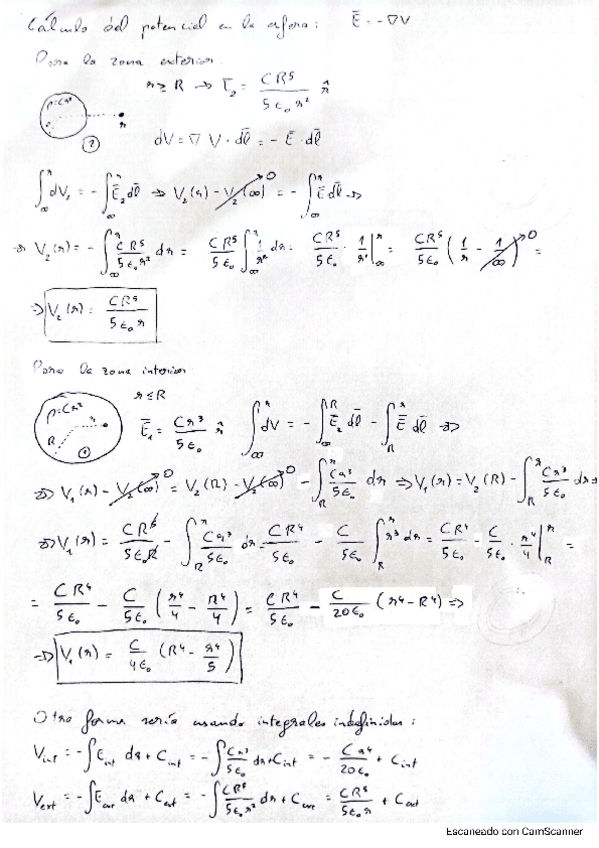 Cálculo del potencial en la esfera: Ē = -∇V
Para la zona exterior:
r ≥ R → Ē₂ = CR⁵/5ε₀r² r̂
ρ=Cr²
r
②
dV = ∇V·dl̄ = -Ē·dl̄
∫_∞^r dV₂ = -∫_∞^r Ē₂dl̄ ⇒ V₂(r) - V₂(∞)→0 = -∫_∞^r Ēdl̄ ⇒
⇒ V₂(r) = -∫_∞^r CR⁵/5ε₀r² dr = CR⁵/5ε₀ ∫_∞^r 1/r² dr = CR⁵/5ε₀ · 1/r|_∞^r = CR⁵/5ε₀ (1/r - 1/∞→0) =
⇒ V₂(r) = CR⁵/5ε₀r
Para la zona interior:
r ≤ R
ρ=Cr²
R r
①
Ē₁ = Cr³/5ε₀ r̂ ∫_∞^r dV = -∫_∞^R Ē₂dl̄ - ∫_R^r Ēdl̄ ⇒
⇒ V₁(r) - V₂(∞)→0 = V₂(R) - V₂(∞)→0 - ∫_R^r Cr³/5ε₀ dr ⇒ V₁(r) = V₂(R) - ∫_R^r Cr³/5ε₀ dr ⇒
⇒ V₁(r) = CR⁵/5ε₀R - ∫_R^r Cr³/5ε₀ dr = CR⁴/5ε₀ - C/5ε₀ ∫_R^r r³dr = CR⁴/5ε₀ - C/5ε₀ · r⁴/4|_R^r =
= CR⁴/5ε₀ - C/5ε₀ (r⁴/4 - R⁴/4) = CR⁴/5ε₀ - C/20ε₀ (r⁴-R⁴) ⇒
⇒ V₁(r) = C/4ε₀ (R⁴ - r⁴/5)
Otra forma sería usando integrales indefinidas:
V_int = -∫E_int dr + C_int = -∫Cr³/5ε₀ dr + C_int = -Cr⁴/20ε₀ + C_int
V_ext = -∫E_ext dr + C_ext = -∫CR⁵/5ε₀r² dr + C_ext = CR⁵/5ε₀r + C_ext
Escaneado con CamScanner